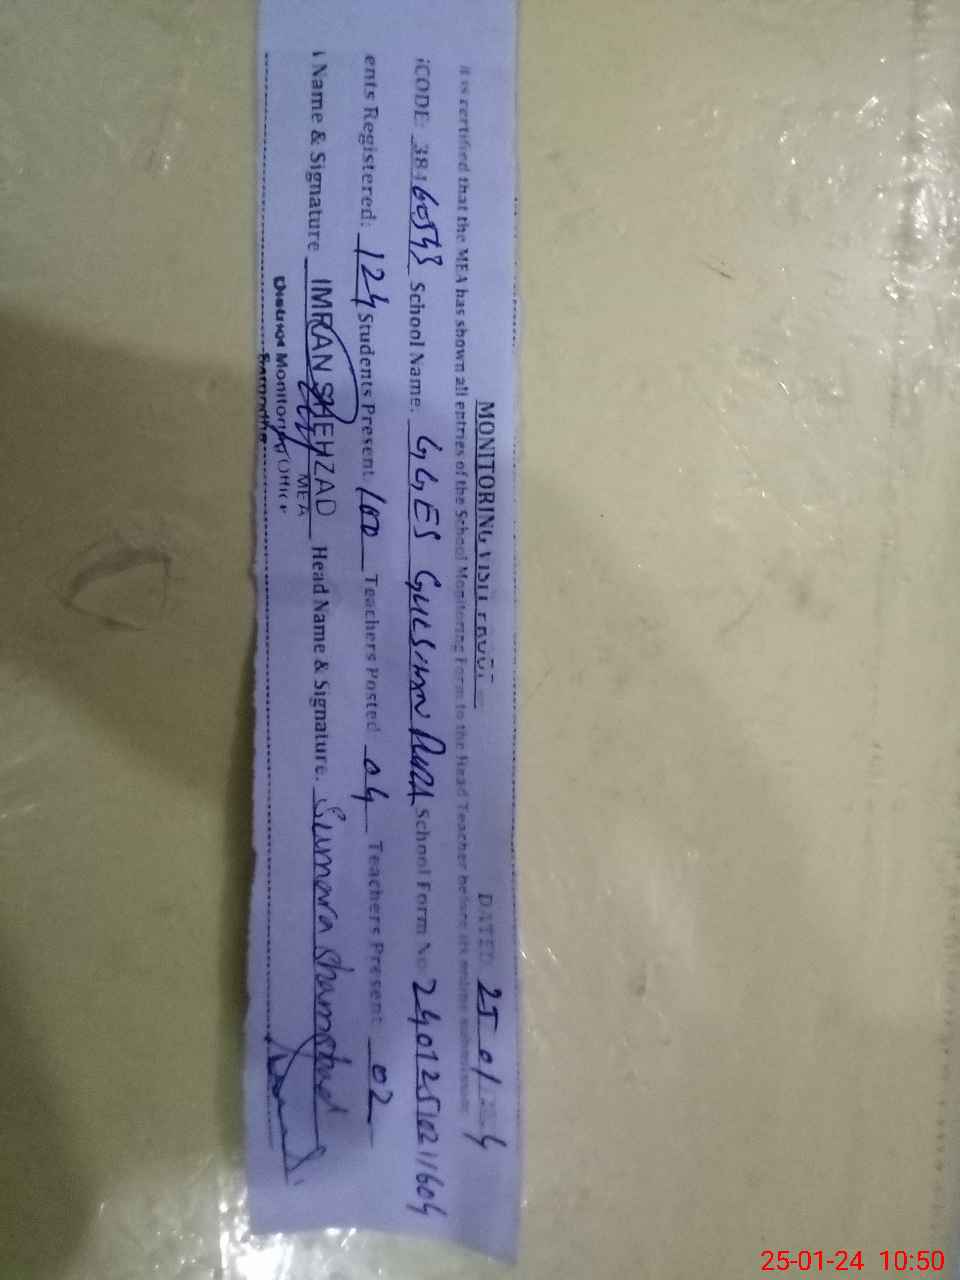 MONITORING VISIT PROOF
DATED 25 01 2024
It is certified that the MEA has shown all entries of the School Monitoring Form to the Head Teacher before its online submission.
iCODE: 38460543 School Name. GGES GULSHAN PURA School Form No 24012510211604
ents Registered: 124 Students Present 100 Teachers Posted 04 Teachers Present 02
Name & Signature IMRAN SHEHZAD Head Name & Signature. Sumera Shamshad
MEA
District Monitoring Office
Sargodha
25-01-24 10:50